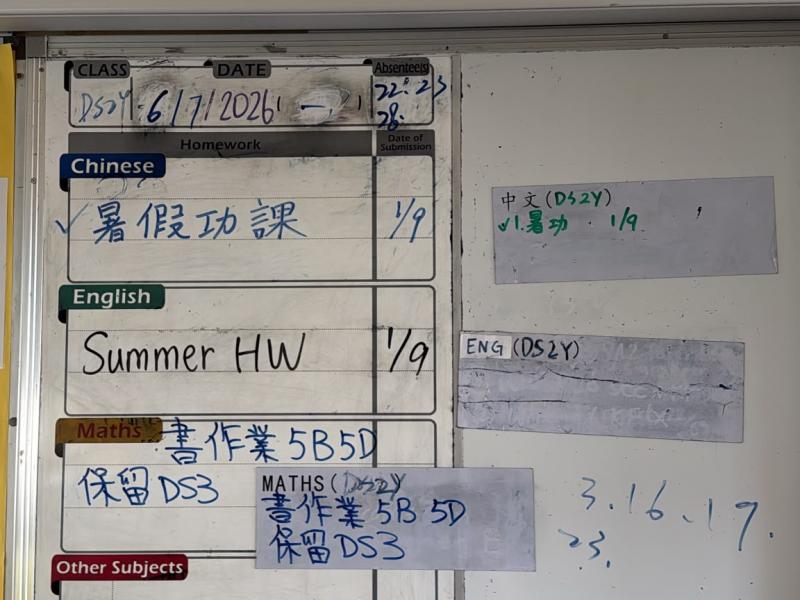 CLASS DATE Absentee(s)
DS2Y 6/7/2026 一 22. 23
28.
Homework Date of Submission
Chinese
✓暑假功課 1/9
English
Summer HW 1/9
Maths 書作業 5B 5D
保留 DS3
Other Subjects
中文(DS2Y)
✓1.暑功 1/9
ENG (DS2Y)
MATHS (DS2Y
書作業 5B 5D
保留 DS3
3.16.19.
23.